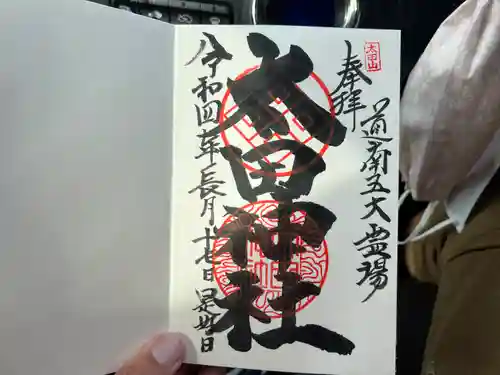 太田山
奉拝
道南五大霊場
太田神社
令和四年長月十七日 是好日